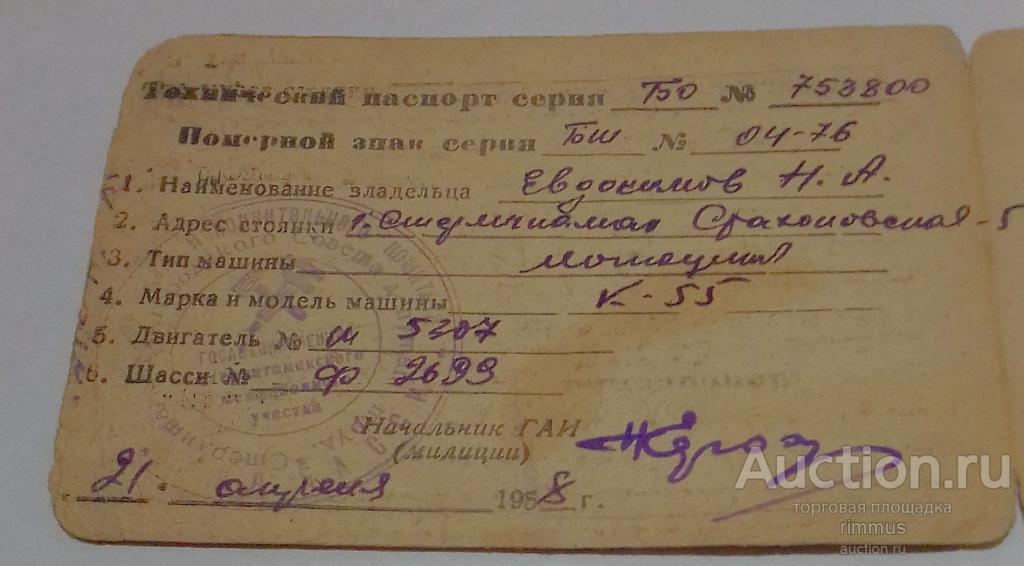 Технический паспорт серия БО № 753800
Номерной знак серия БШ № 04-76
1. Наименование владельца Евдокимов Н. А.
2. Адрес стоянки г. Стерлитамак Стахановская - 5
3. Тип машины мотоцикл
4. Марка и модель машины К-55
5. Двигатель № Ш 5207
6. Шасси № Ф 2699
Начальник ГАИ
(милиции)
21 апреля 1958 г.
Auction.ru
торговая площадка
rimmus
auction.ru